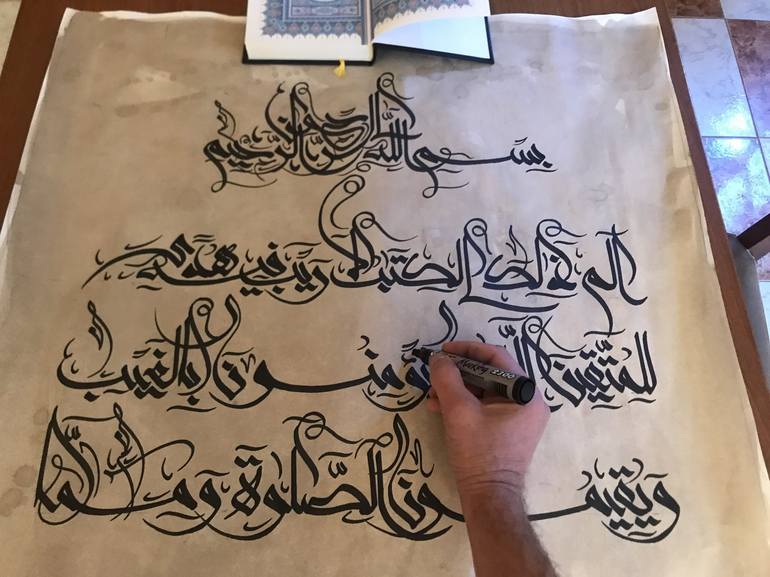 بسم الله الرحمن الرحيم
الم ذلك الكتب لا ريب فيه هدى
للمتقين الذين يؤمنون بالغيب
ويقيمون الصلوة ومما